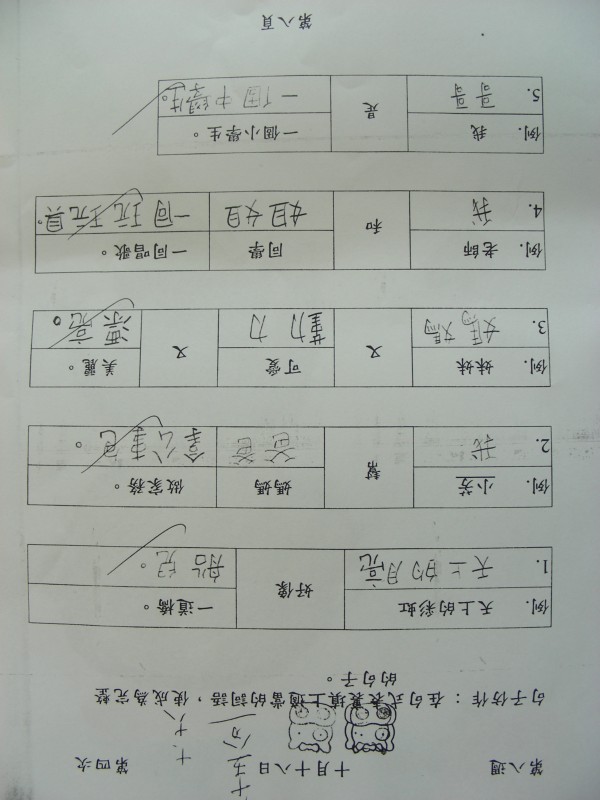 第八週 十月十八日 第四次
句子仿作：在句式表裏填上適當的詞語，使成為完整
的句子。
例. 天上的彩虹 好像 一道橋。
1. 天上的月亮 船兒。
例. 小芳 幫 媽媽 做家務。
2. 我 爸爸 拿公事包。
例. 妹妹 又 可愛 又 美麗。
3. 媽媽 勤力 漂亮。
例. 老師 和 同學 一同唱歌。
4. 我 姐姐 一同玩玩具。
例. 我 是 一個小學生。
5. 哥哥 一個中學生。
第八頁